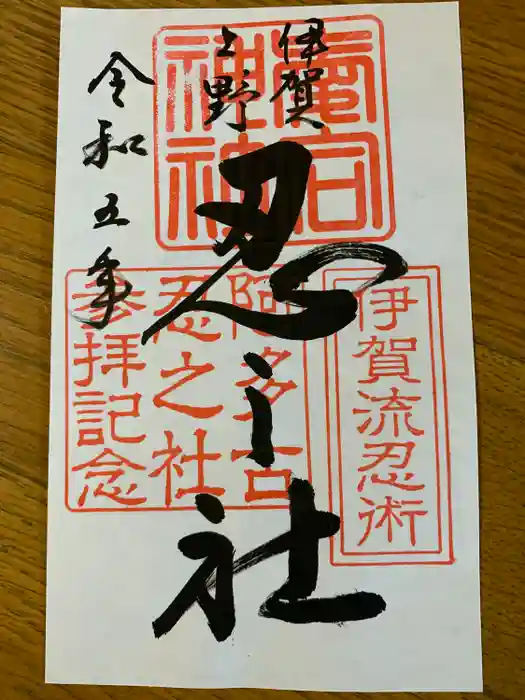 伊賀
上野
忍之社
令和五年
愛宕
神社
伊賀流忍術
阿多古
忍之社
参拝記念